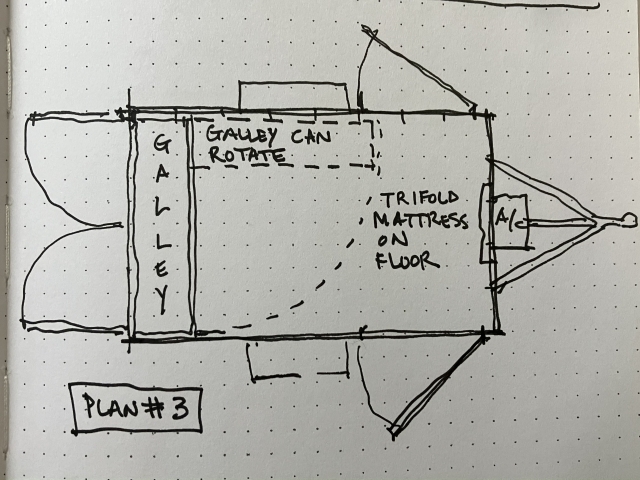 GALLEY
GALLEY CAN
ROTATE
TRIFOLD
MATTRESS
ON
FLOOR
A/C
PLAN #3